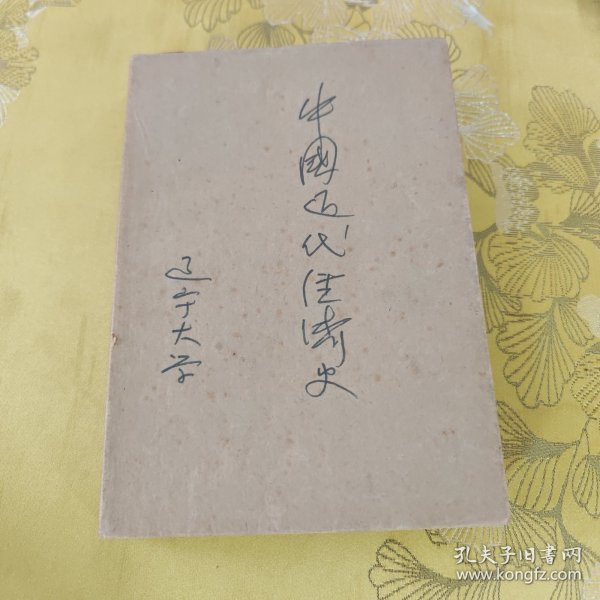 中國近代经濟史
辽宁大学
孔夫子旧書网
www.kongfz.com